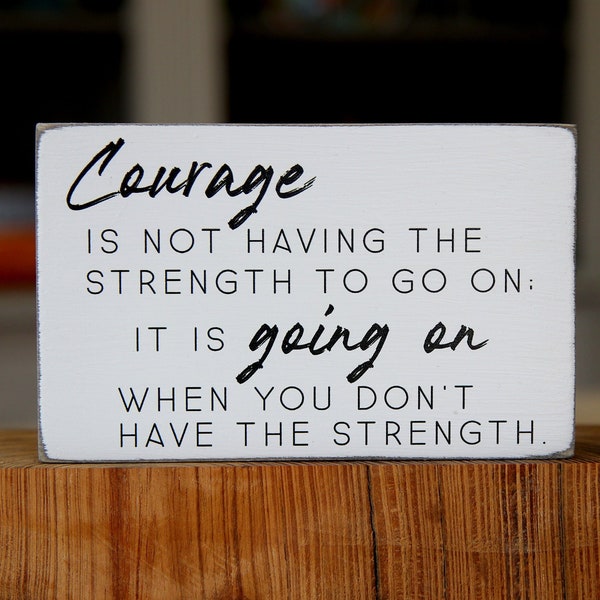 Courage
IS NOT HAVING THE
STRENGTH TO GO ON;
IT IS going on
WHEN YOU DON'T
HAVE THE STRENGTH.